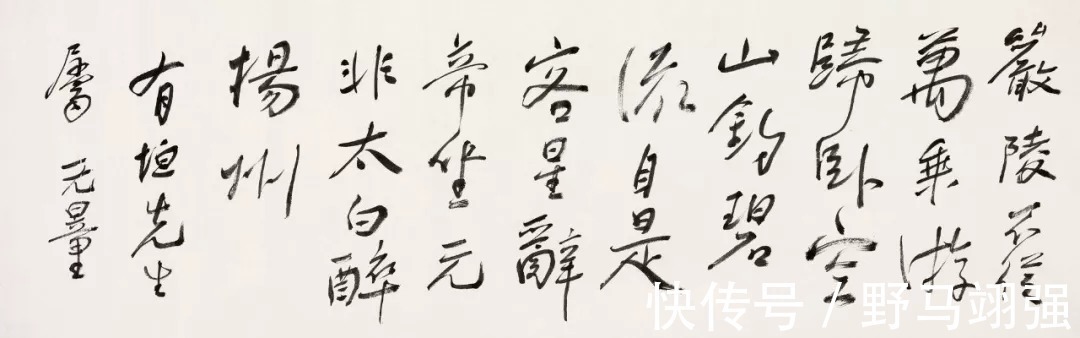 嚴陵不從
萬乘游
歸卧空
山釣碧
流自是
客星辭
帝坐元
非太白醉
楊州
有垣先生
屬 无量
快传号 / 野马翊强